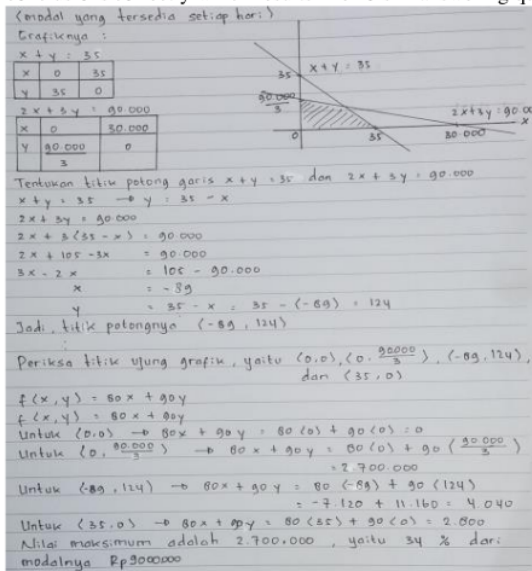 (modal yang tersedia setiap hari)
Grafiknya :
x + y = 35
x 0 35
y 35 0
2x + 3y = 90.000
x 0 30.000
y 90.000/3 0
35
x + y = 35
90.000/3
2x + 3y = 90.00
x
0
35
30.000
Tentukan titik potong garis x + y = 35 dan 2x + 3y = 90.000
x + y = 35 → y = 35 - x
2x + 3y = 90.000
2x + 3(35 - x) = 90.000
2x + 105 - 3x = 90.000
3x - 2x = 105 - 90.000
x = -89
y = 35 - x = 35 - (-89) = 124
Jadi, titik potongnya (-89, 124)
Periksa titik ujung grafik, yaitu (0,0), (0, 90000/3), (-89, 124),
dan (35, 0)
f(x, y) = 80x + 90y
f(x, y) = 80x + 90y
Untuk (0,0) → 80x + 90y = 80(0) + 90(0) = 0
Untuk (0, 90.000/3) → 80x + 90y = 80(0) + 90(90.000/3)
= 2.700.000
Untuk (-89, 124) → 80x + 90y = 80(-89) + 90(124)
= -7.120 + 11.160 = 4.040
Untuk (35, 0) → 80x + 90y = 80(35) + 90(0) = 2.800
Nilai maksimum adalah 2.700.000, yaitu 34 % dari
modalnya Rp9000000